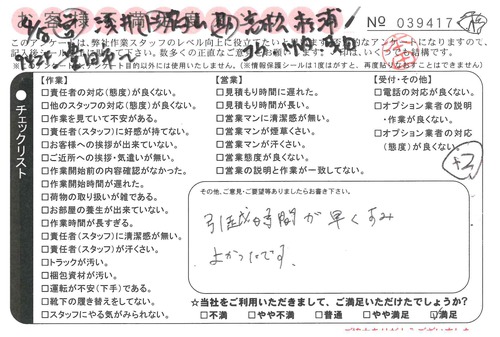 No 039417
このアンケートは、弊社作業スタッフのレベル向上に役立てたい
(※情報保護シールは1度はがすと、再度貼りなおすことはできません)
チェックリスト
【作業】
□責任者の対応(態度)が良くない。
□他のスタッフの対応(態度)が良くない。
□作業を見ていて不安がある。
□責任者(スタッフ)に好感が持てない。
□お客様への挨拶が出来ていない。
□ご近所への挨拶・気遣いが無い。
□作業開始前の内容確認がなかった。
□作業開始時間が遅れた。
□荷物の取り扱いが雑である。
□お部屋の養生が出来ていない。
□作業時間が長すぎる。
□責任者(スタッフ)に清潔感が無い。
□責任者(スタッフ)が汗くさい。
□トラックが汚い。
□梱包資材が汚い。
□運転が不安(下手)である。
□靴下の履き替えをしてない。
□スタッフにやる気がみられない。
【営業】
□見積もり時間に遅れた。
□見積もり時間が長い。
□営業マンに清潔感が無い。
□営業マンが煙草くさい。
□営業マンが汗くさい。
□営業態度が良くない。
□営業の説明と作業が一致してない。
【受付・その他】
□電話の対応が良くない。
□オプション業者の説明
・作業が良くない。
□オプション業者の対応
(態度)が良くない。
+3
その他、ご意見・ご要望等ありましたらお書き下さい。
引越時間が早くすみ
よかったです。
☆当社をご利用いただきまして、ご満足いただけたでしょうか?
□不満 □やや不満 □普通 □やや満足 ☑満足